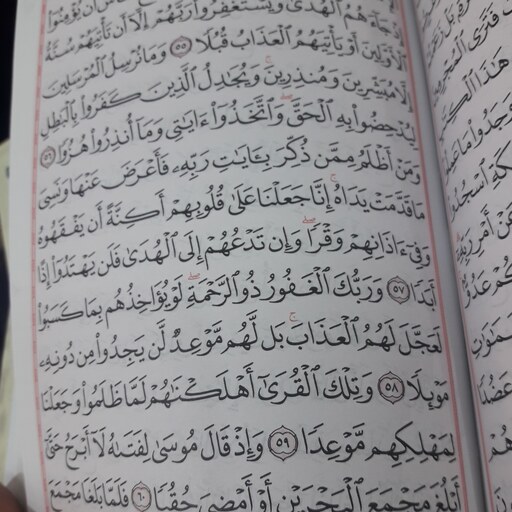 جَآءَهُمُ ٱلۡهُدَىٰ وَيَسۡتَغۡفِرُواْ رَبَّهُمۡ إِلَّآ أَن تَأۡتِيَهُمۡ سُنَّةُ
ٱلۡأَوَّلِينَ أَوۡ يَأۡتِيَهُمُ ٱلۡعَذَابُ قُبُلٗا ٥٥ وَمَا نُرۡسِلُ ٱلۡمُرۡسَلِينَ
إِلَّا مُبَشِّرِينَ وَمُنذِرِينَۚ وَيُجَٰدِلُ ٱلَّذِينَ كَفَرُواْ بِٱلۡبَٰطِلِ
لِيُدۡحِضُواْ بِهِ ٱلۡحَقَّۖ وَٱتَّخَذُوٓاْ ءَايَٰتِي وَمَآ أُنذِرُواْ هُزُوٗا ٥٦
وَمَنۡ أَظۡلَمُ مِمَّن ذُكِّرَ بِـَٔايَٰتِ رَبِّهِۦ فَأَعۡرَضَ عَنۡهَا وَنَسِيَ
مَا قَدَّمَتۡ يَدَاهُۚ إِنَّا جَعَلۡنَا عَلَىٰ قُلُوبِهِمۡ أَكِنَّةً أَن يَفۡقَهُوهُ
وَفِيٓ ءَاذَانِهِمۡ وَقۡرٗاۖ وَإِن تَدۡعُهُمۡ إِلَى ٱلۡهُدَىٰ فَلَن يَهۡتَدُوٓاْ إِذًا
أَبَدٗا ٥٧ وَرَبُّكَ ٱلۡغَفُورُ ذُو ٱلرَّحۡمَةِۖ لَوۡ يُؤَاخِذُهُم بِمَا كَسَبُواْ
لَعَجَّلَ لَهُمُ ٱلۡعَذَابَۚ بَل لَّهُم مَّوۡعِدٞ لَّن يَجِدُواْ مِن دُونِهِۦ
مَوۡئِلٗا ٥٨ وَتِلۡكَ ٱلۡقُرَىٰٓ أَهۡلَكۡنَٰهُمۡ لَمَّا ظَلَمُواْ وَجَعَلۡنَا
لِمَهۡلِكِهِم مَّوۡعِدٗا ٥٩ وَإِذۡ قَالَ مُوسَىٰ لِفَتَىٰهُ لَآ أَبۡرَحُ حَتَّىٰٓ
أَبۡلُغَ مَجۡمَعَ ٱلۡبَحۡرَيۡنِ أَوۡ أَمۡضِيَ حُقُبٗا ٦٠ فَلَمَّا بَلَغَا مَجۡمَعَ